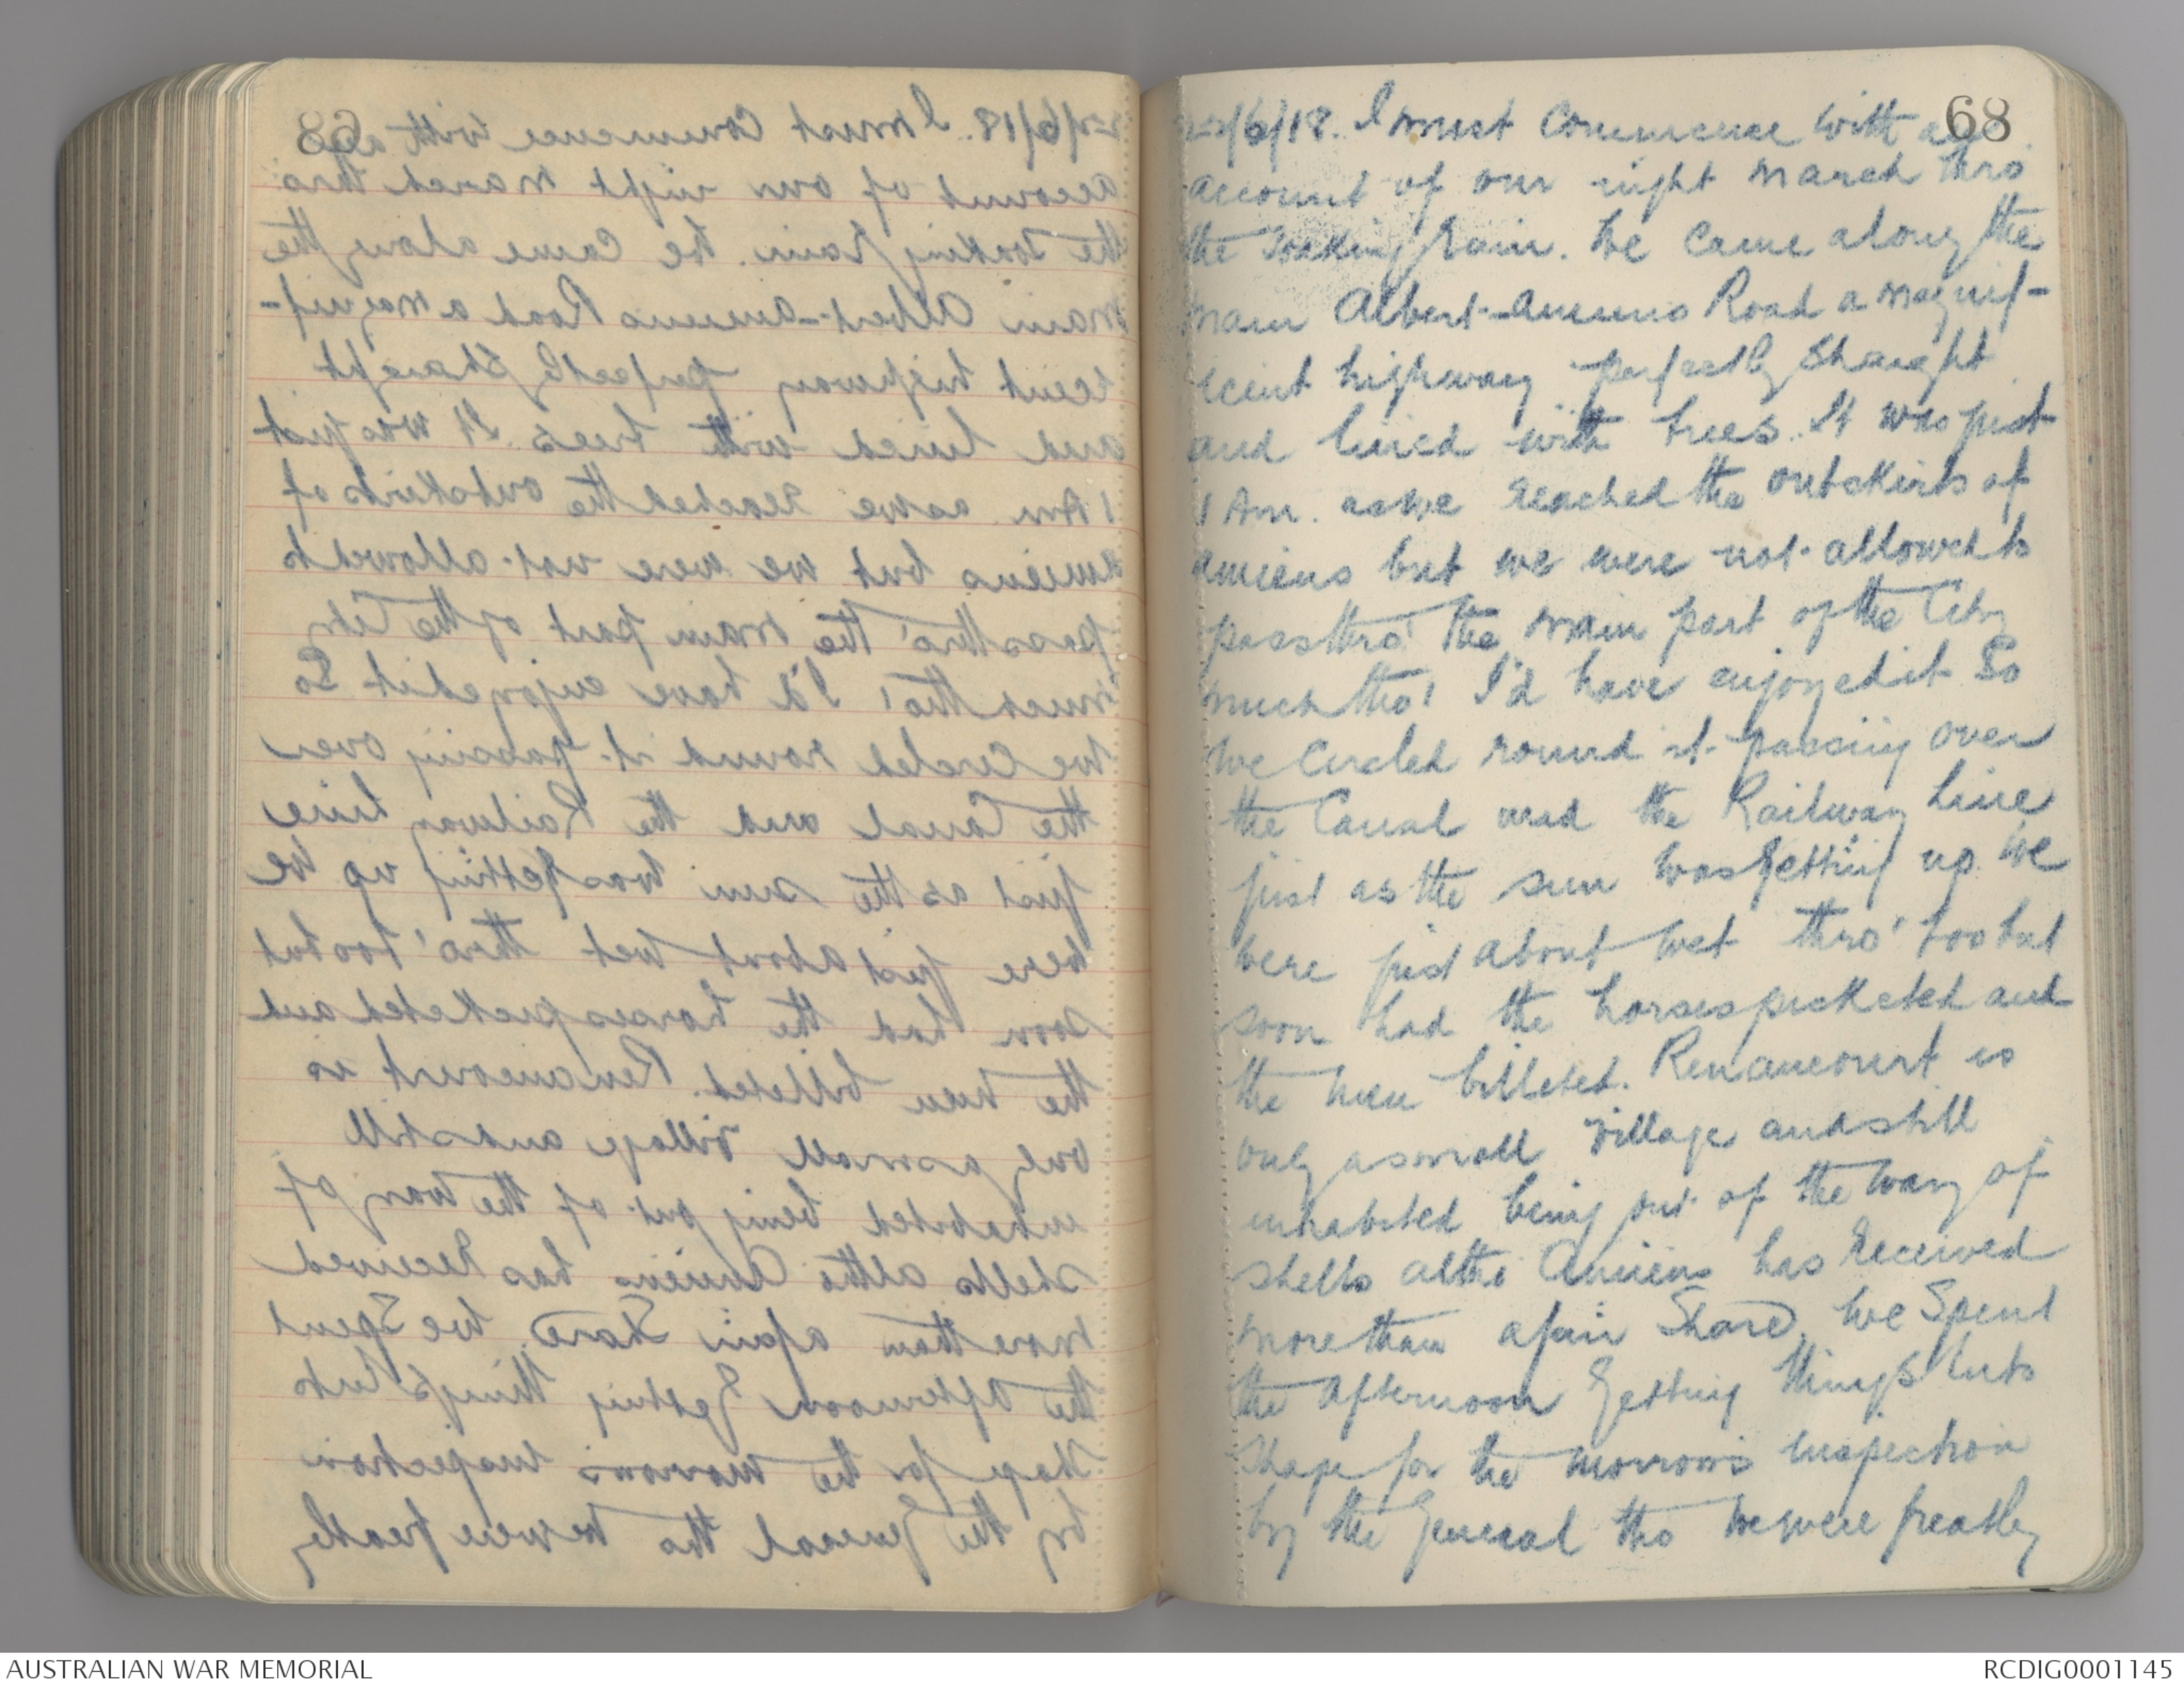 68
22/6/18. I must commence with an
account of our night march thro
the soaking rain. We came along the
main Albert-Amiens Road a magnif-
icent highway perfectly straight
and lined with trees. It was just
1 Am. as we reached the outskirts of
Amiens but we were not allowed to
pass thro' the main part of the City
much tho' I'd have enjoyed it So
we circled round it passing over
the Canal and the Railway line
just as the sun was getting up. We
were just about wet thro' too but
soon had the horses picketed and
the men billeted. Renancourt is
only a small village and still
inhabited being out of the way of
shells altho Amiens has received
more than a fair share. We spent
the afternoon getting things into
shape for the morrow's inspection
by the General tho we were greatly
AUSTRALIAN WAR MEMORIAL
RCDIG0001145